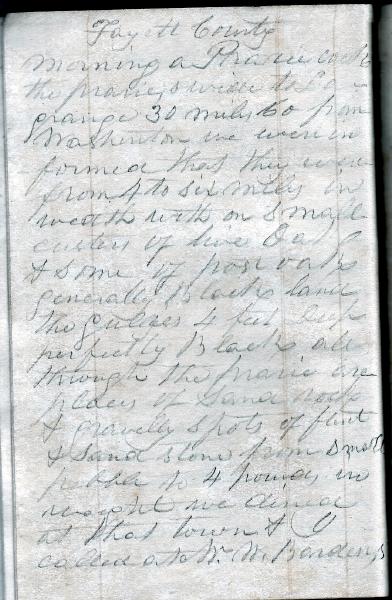 Fayett County
morning a Prairie cock
the prairies wide to La
grange 30 miles 60 from
Washenton we ware in
formed that they ware
from 4 to six miles in
weadth with on small
custers of live Oak
& some of post oaks
generally Black land
the gullies 4 feet deep
perfectly Black all
through the prairie are
places of sand rock
& gravelly spots of flint
& sand stone from small
pebble to 4 pounds in
weight we dined
at that town &
called at Mr. W. Bardens